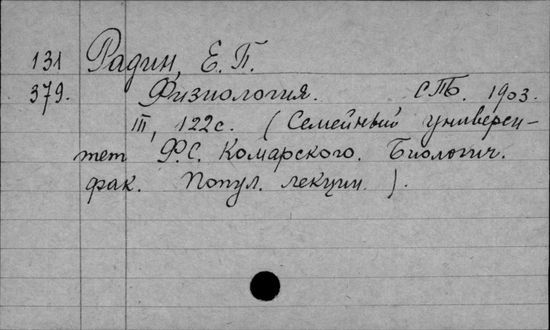 131 Радин, Е. П.
379. Физиология. СПб. 1903.
III, 122с. (Семейный универси-
тет Ф.С. Комарского. Биологич.
фак. Попул. лекции.).